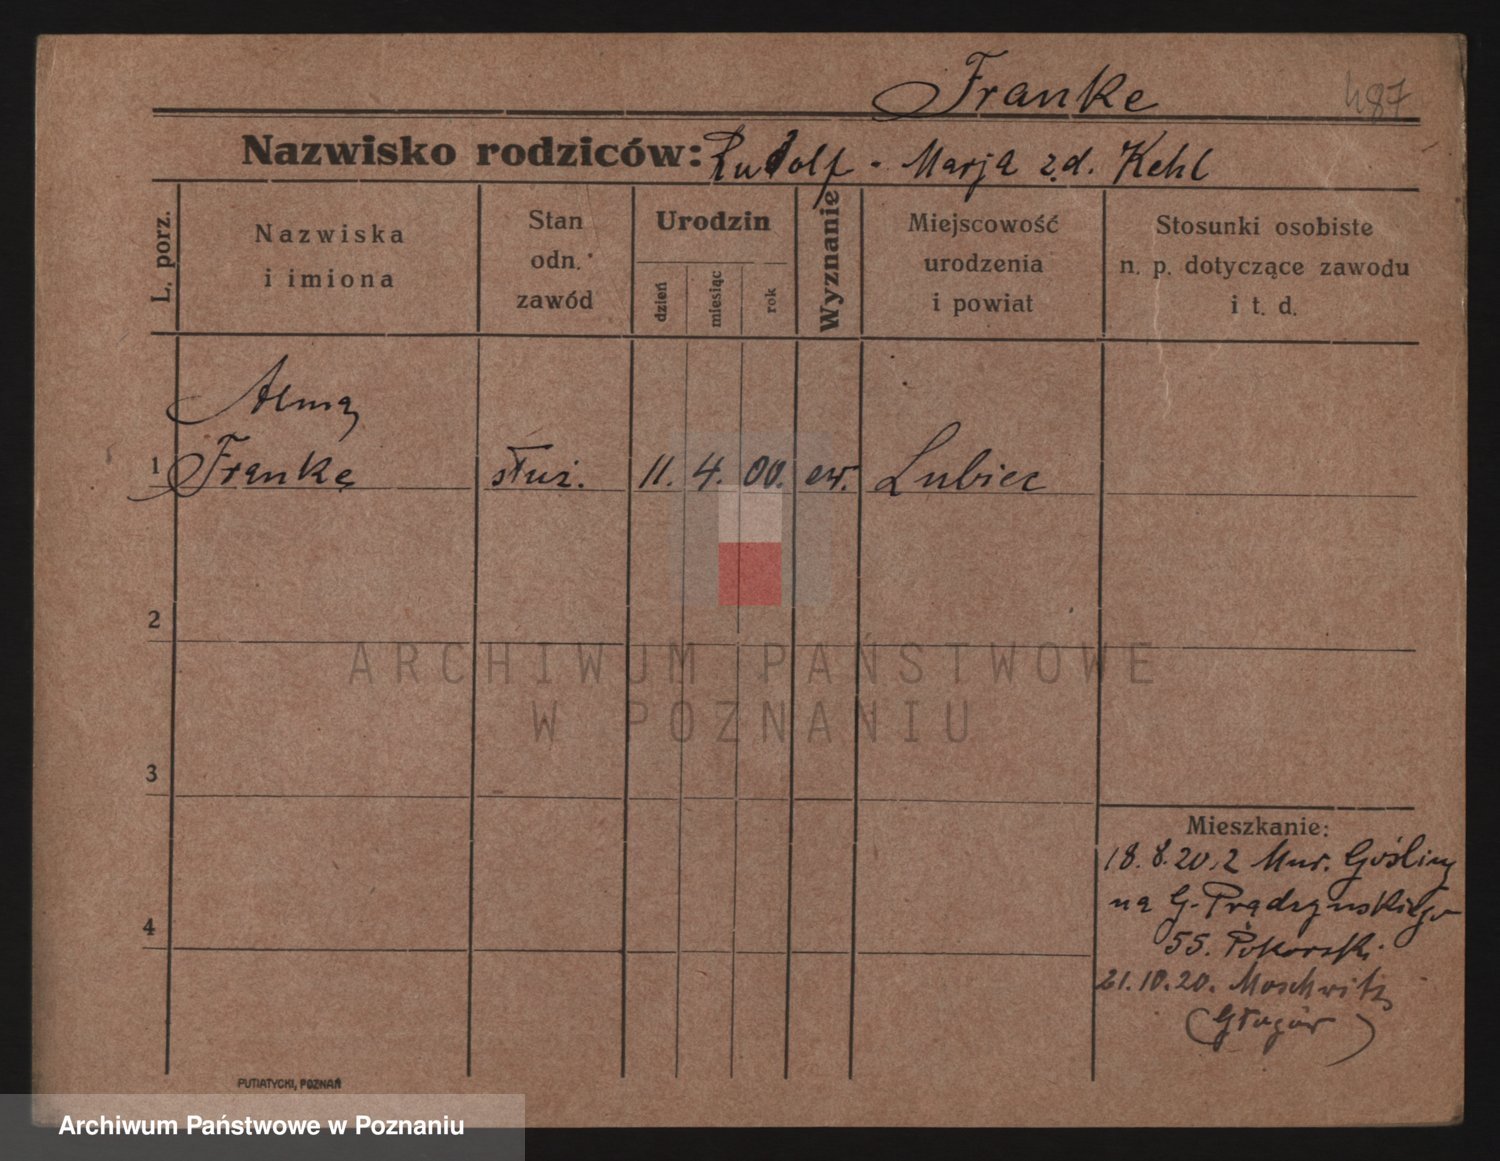 Franke
487
Nazwisko rodziców: Rudolf - Marja z.d. Kehl
L. porz.
Nazwiska
i imiona
Stan
odn.
zawód
Urodzin
dzień
miesiąc
rok
Wyznanie
Miejscowość
urodzenia
i powiat
Stosunki osobiste
n. p. dotyczące zawodu
i t. d.
Alma
1 Franke służ. 11. 4. 00. ew. Lubiec
2
ARCHIWUM PAŃSTWOWE
W POZNANIU
3
Mieszkanie:
18. 8. 20. z Mur. Gośliny
na G. Prądzynskiego
4
55. Pokorski
21. 10. 20. Moschwitz
(Głogów)
PUTIATYCKI, POZNAŃ
Archiwum Państwowe w Poznaniu